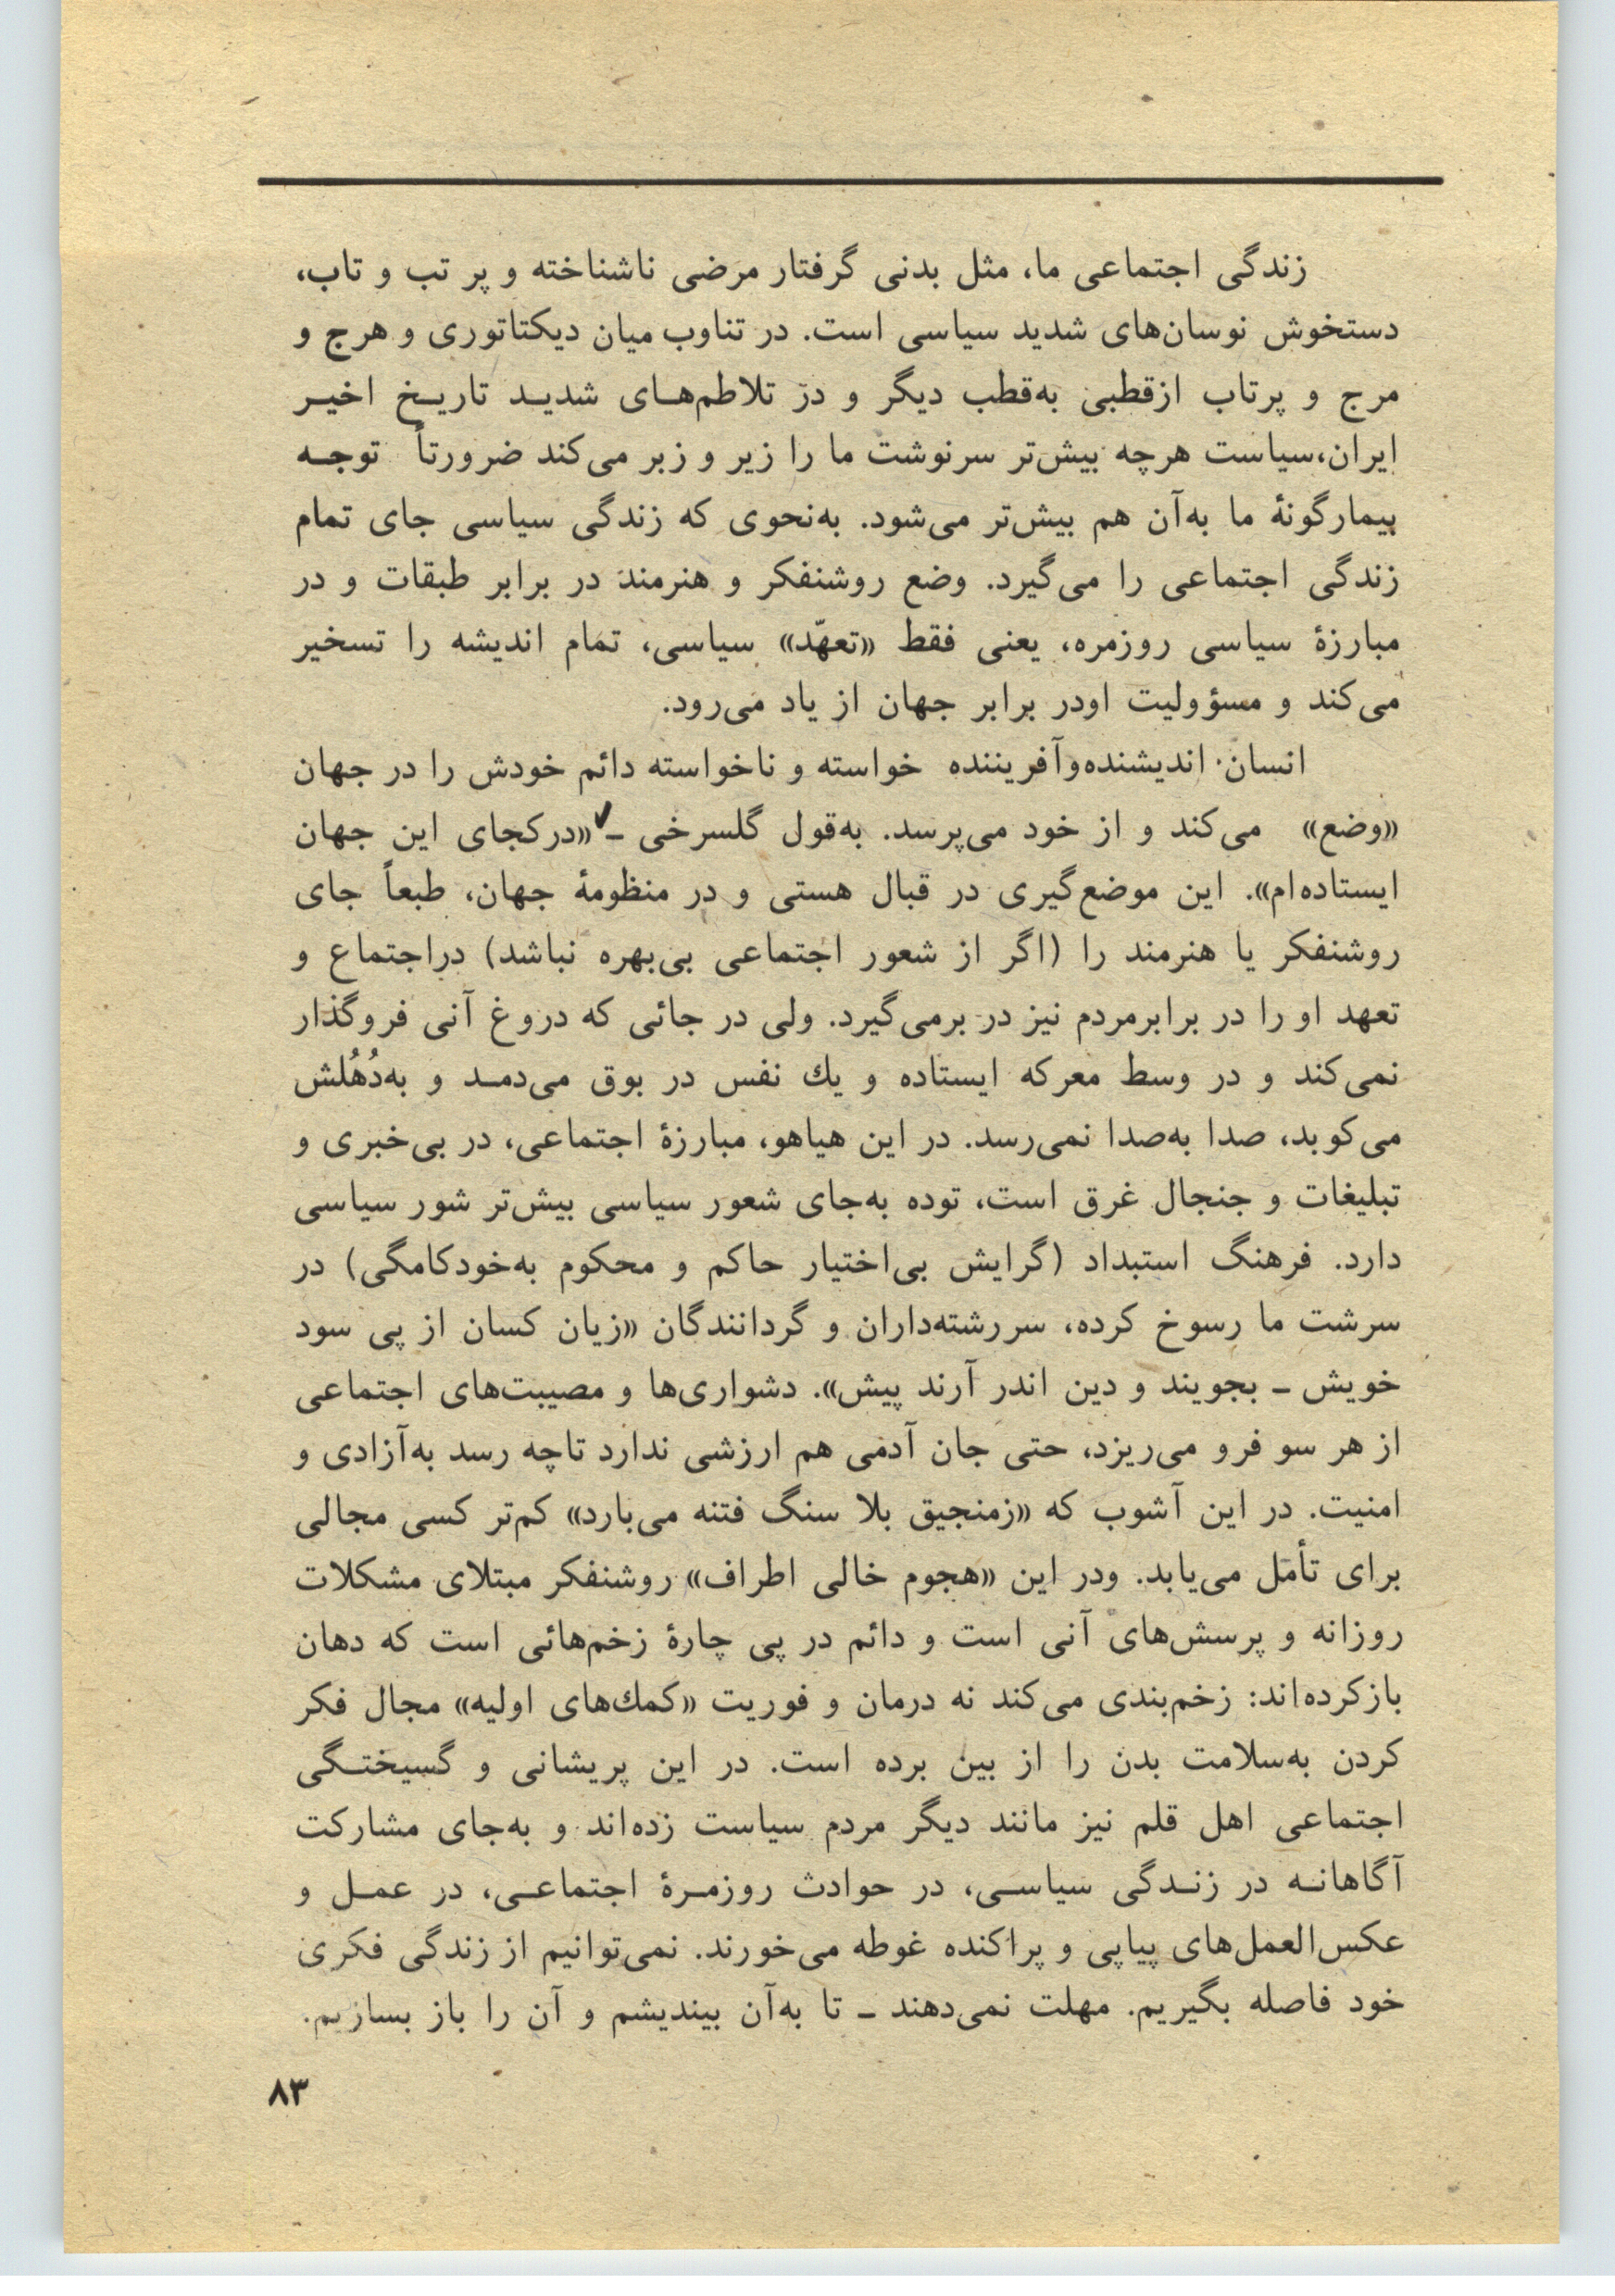 زندگی اجتماعی ما، مثل بدنی گرفتار مرضی ناشناخته و پر تب و تاب،
دستخوش نوسان‌های شدید سیاسی است. در تناوب میان دیکتاتوری و هرج و
مرج و پرتاب ازقطبی به‌قطب دیگر و در تلاطم‌های شدید تاریخ اخیر
ایران،سیاست هرچه بیش‌تر سرنوشت ما را زیر و زبر می‌کند ضرورتاً توجه
بیمارگونهٔ ما به‌آن هم بیش‌تر می‌شود. به‌نحوی که زندگی سیاسی جای تمام
زندگی اجتماعی را می‌گیرد. وضع روشنفکر و هنرمند در برابر طبقات و در
مبارزهٔ سیاسی روزمره، یعنی فقط «تعهّد» سیاسی، تمام اندیشه را تسخیر
می‌کند و مسؤولیت اودر برابر جهان از یاد می‌رود.
انسان اندیشنده‌وآفریننده خواسته و ناخواسته دائم خودش را در جهان
«وضع» می‌کند و از خود می‌پرسد. به‌قول گلسرخی ـ «درکجای این جهان
ایستاده‌ام». این موضع‌گیری در قبال هستی و در منظومهٔ جهان، طبعاً جای
روشنفکر یا هنرمند را (اگر از شعور اجتماعی بی‌بهره نباشد) دراجتماع و
تعهد او را در برابرمردم نیز در برمی‌گیرد. ولی در جائی که دروغ آنی فروگذار
نمی‌کند و در وسط معرکه ایستاده و یك نفس در بوق می‌دمد و به‌دُهُلش
می‌کوبد، صدا به‌صدا نمی‌رسد. در این هیاهو، مبارزهٔ اجتماعی، در بی‌خبری و
تبلیغات و جنجال غرق است، توده به‌جای شعور سیاسی بیش‌تر شور سیاسی
دارد. فرهنگ استبداد (گرایش بی‌اختیار حاکم و محکوم به‌خودکامگی) در
سرشت ما رسوخ کرده، سررشته‌داران و گردانندگان «زیان کسان از پی سود
خویش ـ بجویند و دین اندر آرند پیش». دشواری‌ها و مصیبت‌های اجتماعی
از هر سو فرو می‌ریزد، حتی جان آدمی هم ارزشی ندارد تاچه رسد به‌آزادی و
امنیت. در این آشوب که «زمنجیق بلا سنگ فتنه می‌بارد» کم‌تر کسی مجالی
برای تأمّل می‌یابد. ودر این «هجوم خالی اطراف» روشنفکر مبتلای مشکلات
روزانه و پرسش‌های آنی است و دائم در پی چارهٔ زخم‌هائی است که دهان
بازکرده‌اند: زخم‌بندی می‌کند نه درمان و فوریت «کمك‌های اولیه» مجال فکر
کردن به‌سلامت بدن را از بین برده است. در این پریشانی و گسیختگی
اجتماعی اهل قلم نیز مانند دیگر مردم سیاست زده‌اند و به‌جای مشارکت
آگاهانه در زندگی سیاسی، در حوادث روزمرهٔ اجتماعی، در عمل و
عکس‌العمل‌های پیاپی و پراکنده غوطه می‌خورند. نمی‌توانیم از زندگی فکری
خود فاصله بگیریم. مهلت نمی‌دهند ـ تا به‌آن بیندیشم و آن را باز بسازیم.
۸۳